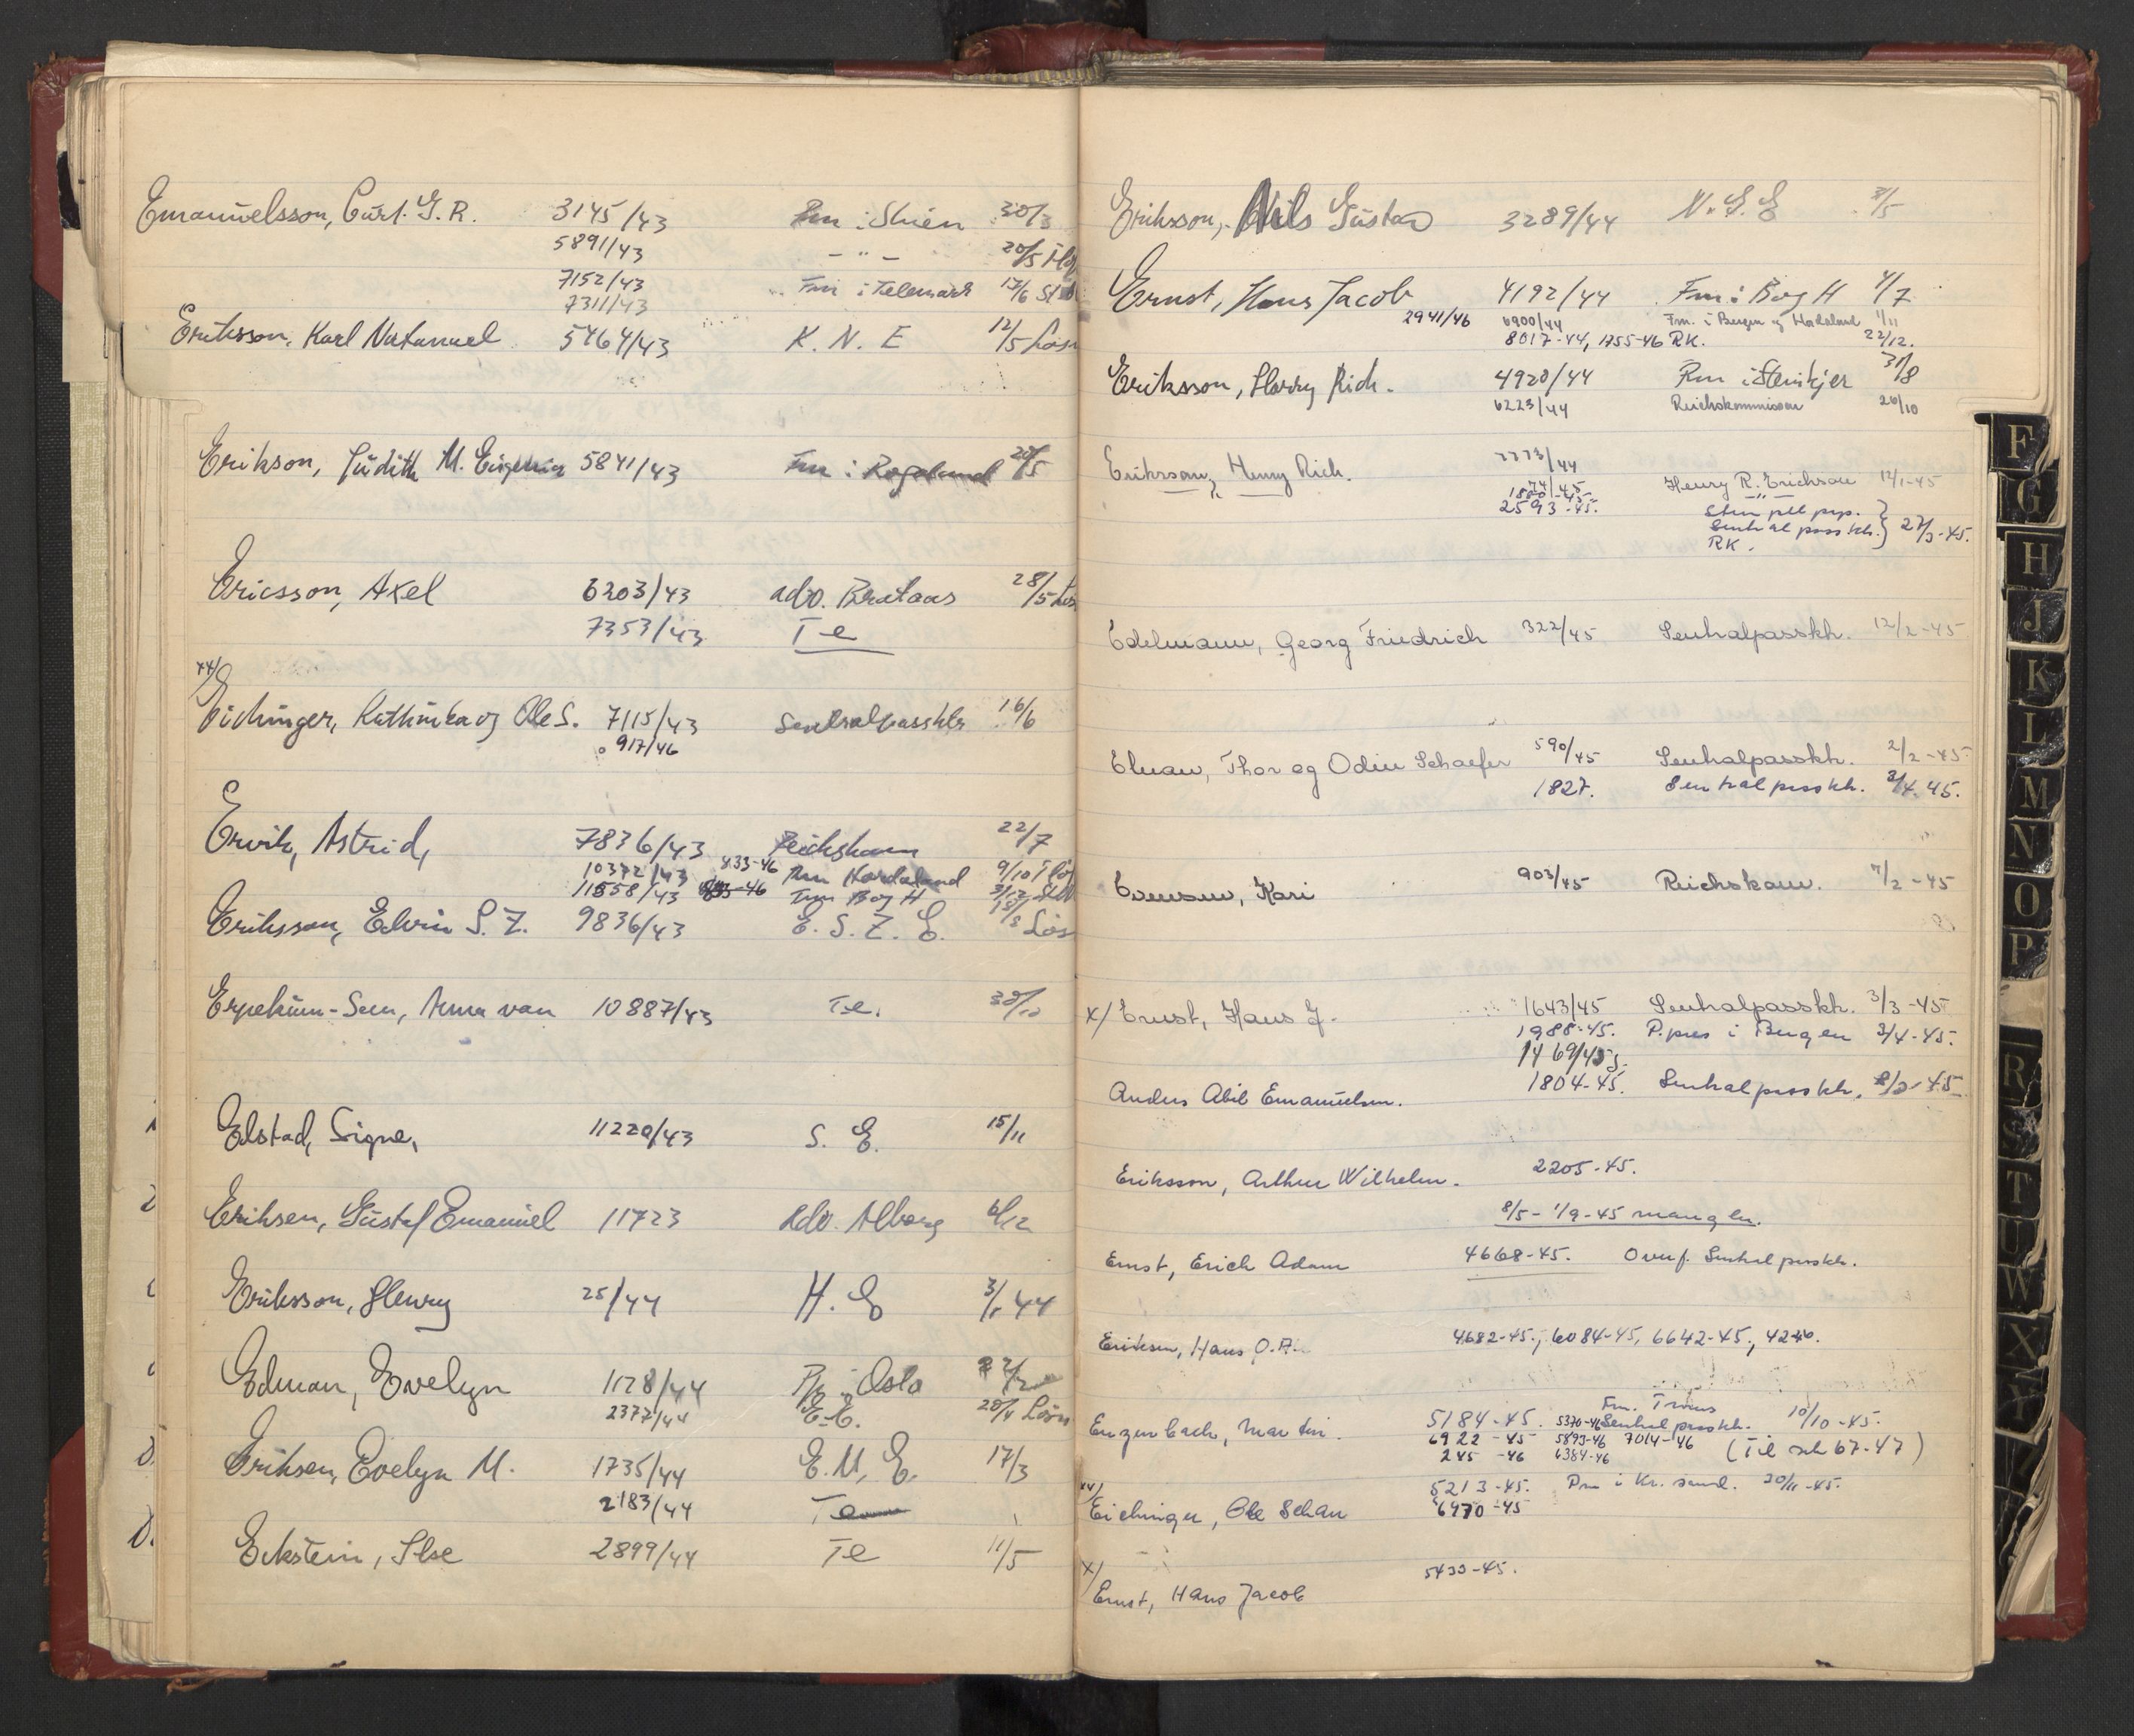 Emanuelsson, Curt. G. R. 3145/43 Pm i Skien 30/3
5891/43 - " - 20/5
7152/43 Fm i Telemark 12/6
7311/43
Eriksson, Karl Natanael 5464/43 K. N. E 12/5
Erikson, Judith M. Eugenia 5841/43 Fm i Rogaland 20/5
Ericsson, Axel 6203/43 adv. Brataas 28/5
7353/43 Te
xx/
Eichinger, Kathinka og Ole S. 7115/43 Sentralpassktr 16/6
917/46
Ervik, Astrid, 7836/43 Reichskom 22/7
10372/43 433-46 Pm Hordaland 9/10
11558/43 Fm B og H
Eriksson, Edvin S. Z. 9836/43 E. S. Z. E.
Erpekum-Sem, Anna van 10887/43 Te.
Edstad, Signe, 11220/43 S. E. 15/11
Eriksen, Gustaf Emanuel 11723 Adv. Alborg 6/12
Eriksson, Henry 25/44 H. E 3/1 44
Edman, Evelyn 1128/44 Pp i Oslo
2377/44 E. E. 20/4
Eriksen, Evelyn M. 1735/44 E. M. E. 17/3
2183/44 Te
Eckstein, Ilse 2899/44 Te 11/5
Eriksson, Nils Gustav 3289/44 N. G. E
Ernst, Hans Jacob 4192/44 Fm i B og H 4/7
2941/46 6900/44 Fm. i Bergen og Hordaland 1/11
8017-44, 1755-46 RK. 22/12.
Eriksson, Harry Rich. 4920/44 Pm i Steinkjer 31/8
6223/44 Reichskommissar 26/10
Erikson, Henry Rich. 7773/44
74/45 Henry R. Erichson 12/1-45
1800-45 - " -
2593-45.
Sentralpasskh. 27/3-45.
RK.
Edelmann, Georg Friedrich 322/45 Sentralpasskh. 12/2-45
Elman, Thor og Odin Schaefer 590/45 Sentralpasskh. 2/2-45
1827. Sentralpasskh. 3/4-45.
Evensen, Kari 903/45 Reichskom. 7/2-45
x/ Ernst, Hans J. 1643/45 Sentralpasskh. 3/3-45
1988-45. P.pres i Bergen 3/4-45.
1469/45
Anders Abil Emanuelsen. 1804-45. Sentralpasskh.
Eriksson, Arthur Wilhelm. 2205-45.
8/5 - 1/9-45 mangler.
Ernst, Erich Adam 4668-45. Overf. Sentralpasskh.
Eriksen, Hans O. 4682-45., 6084-45, 6642-45.,
Fm. Troms
Enzenbach, Martin. 5184-45. 5370-46 Sentralpasskh. 10/10-45.
6922-45 5893-46 7014-46 (Til sak 67-47)
245-46 6384-46
xx/ 5213-45. Pm i Kr. sand. 20/11-45.
Eichinger, Ole Schau 6470-45
x/ 5433-45.
Ernst, Hans Jacob
F
G
H
J
K
L
M
N
O
P
R
S
T
U
W
X
Y